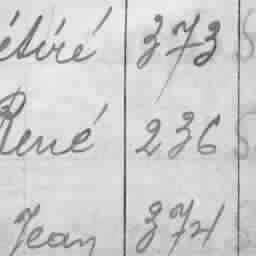 étiré 373
René 236
Jean 374